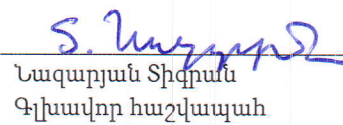 Նազարյան Տիգրան
Գլխավոր հաշվապահ